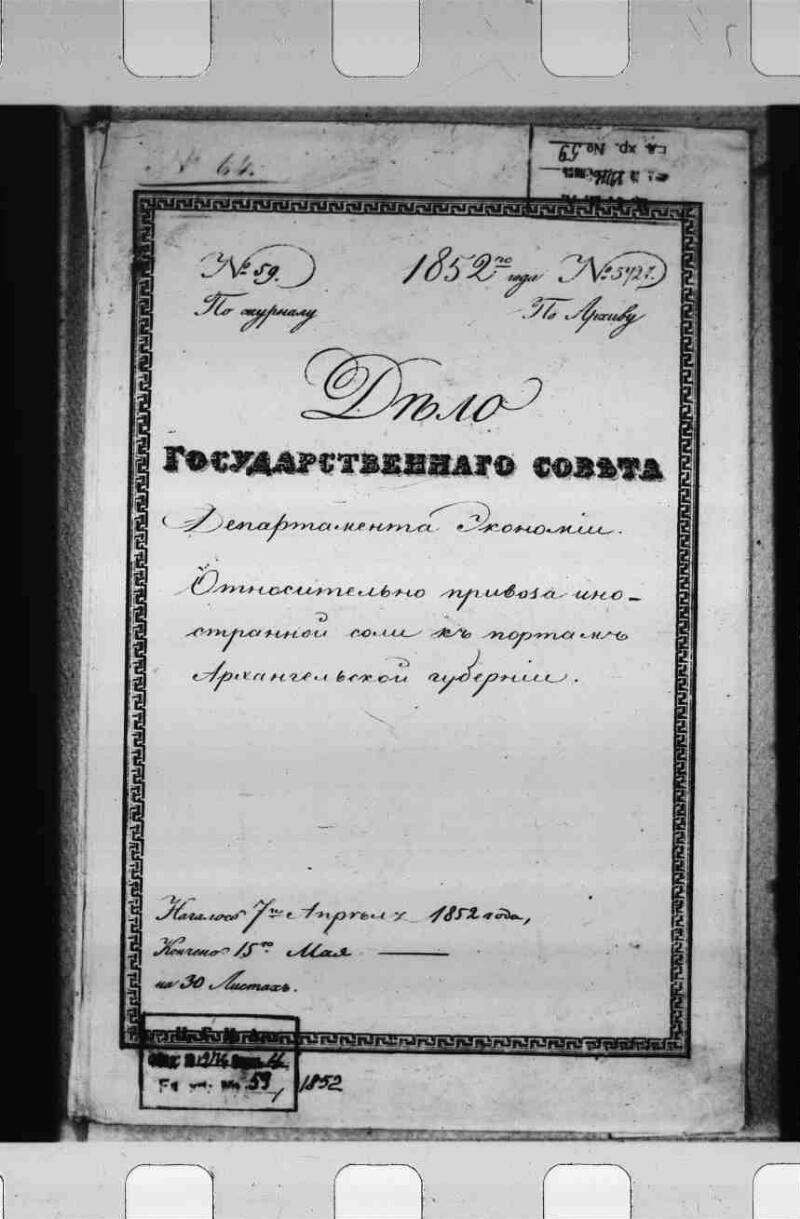 № 64.
ед. хр. № 59
№ 59.
1852го года
№ 3727.
По журналу
По Архиву
Дѣло
ГОСУДАРСТВЕННАГО СОВѢТА
Департамента Экономіи.
Относительно привоза ино-
странной соли къ портамъ
Архангельской губерніи.
Началось 7го Апрѣля 1852 года,
Кончено 15го Мая ——
на 30 Листахъ.
59, 1852